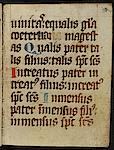 uinitas: equalis gl̃a
coeterna magest
as Qualis pater ta
lis filius: talis sp̃c sc̃s
Increatus pater in
creatꝰ filiꝰ: increatꝰ
sp̃c sc̃s Inmensus
pater inmensus filiꝰ:
inmensus sp̃c sc̃s